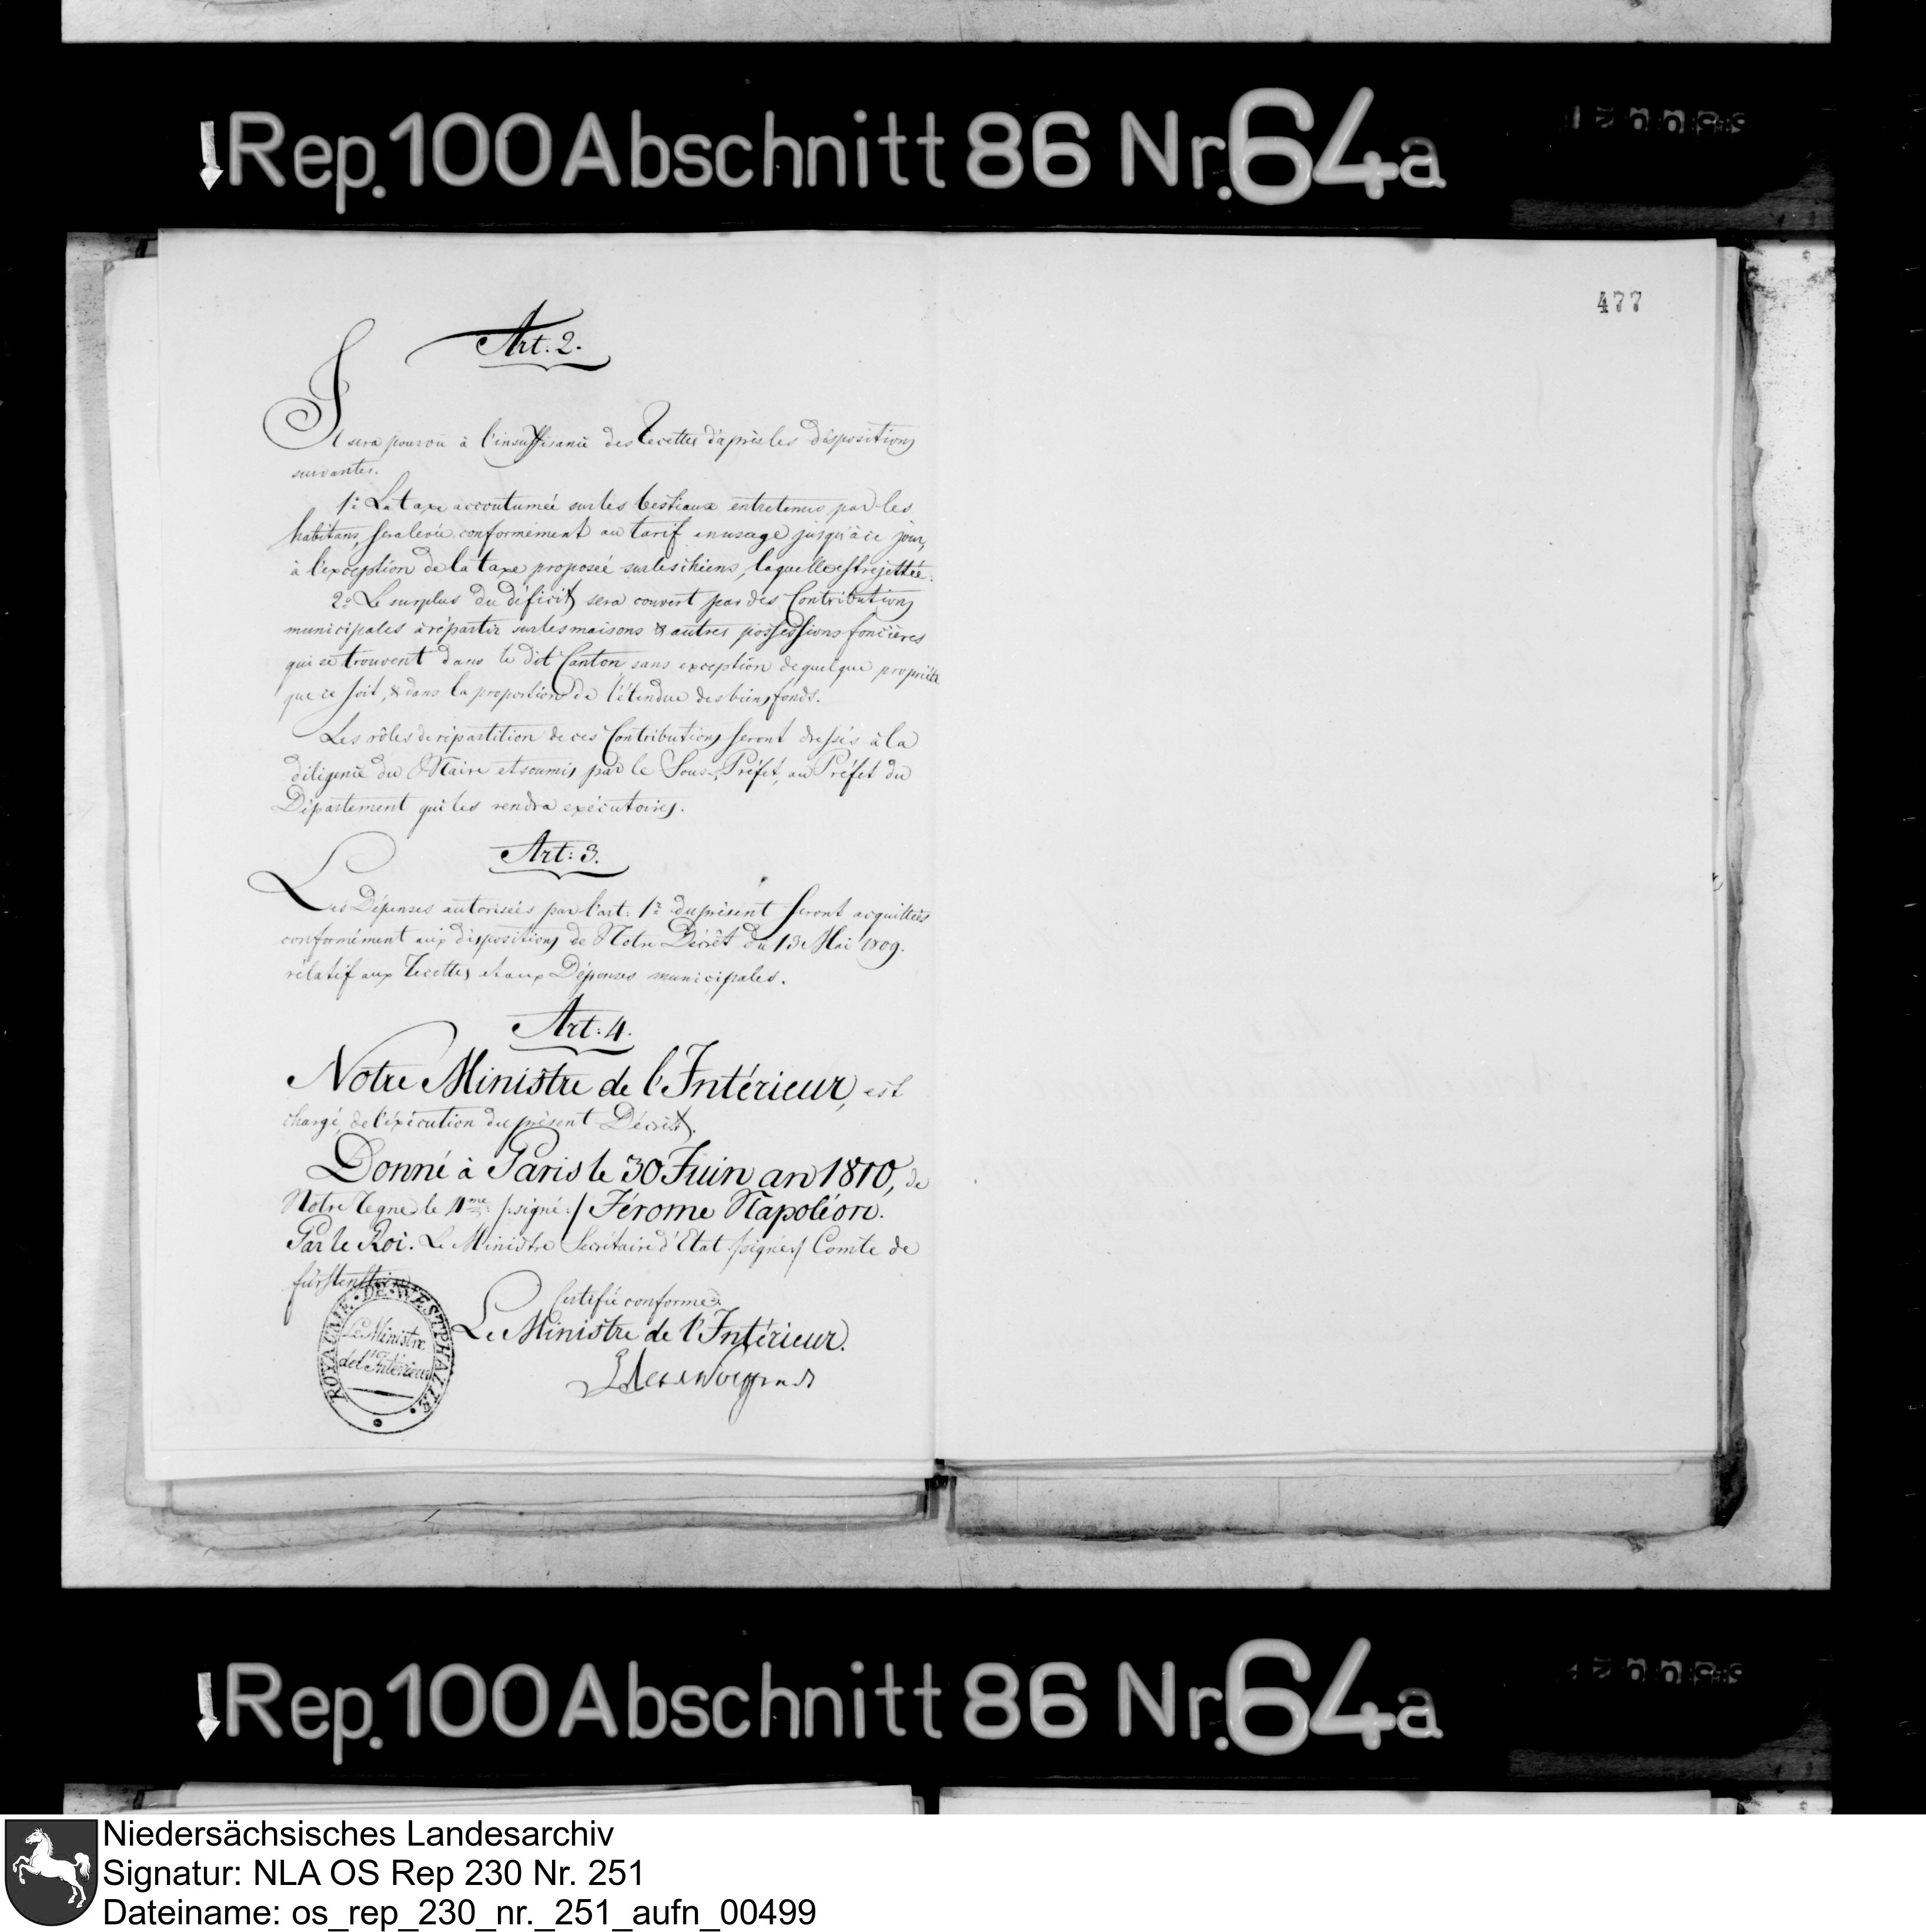 Rep. 100 Abschnitt 86 Nr. 64a
477
Art: 2.
Il sera pourvû à l'insuffisance des Recettes d'après les dispositions
suivantes.
1° La taxe accoutumée sur les bestiaux entretenus par les
habitans, sera levée conformément au tarif en usage jusqu'à ce jour,
à l'exception de la taxe proposée sur les chiens, laquelle est rejettée.
2° Le surplus du déficit sera couvert par des Contributions
municipales à répartir sur les maisons & autres possessions foncières
qui se trouvent dans le dit Canton sans exception de quelque propriété
que ce soit, & dans la proportion de l'étendue des biens fonds.
Les rôles de répartition de ces Contributions seront dressés à la
diligence du Maire et soumis par le Sous-Préfet, au Préfet du
Département qui les rendra exécutoires.
Art: 3.
Les Dépenses autorisées par l'art: 1er du présent seront acquittées
conformément aux dispositions de Notre Décrêt du 13 Mai 1809.
rélatif aux Recettes et aux Dépenses municipales.
Art: 4.
Notre Ministre de l'Intérieur, est
chargé, de l'éxécution du présent Décrêt.
Donné à Paris le 30 Juin an 1810, de
Notre Regne le 4me /:signé:/ Jérome Napoléon.
Par le Roi. Le Ministre Secrétaire d'Etat /signé:/ Comte de
fürstenstein
Certifié conforme.
Le Ministre de l'Intérieur.
ROYAUME · DE · WESTPHALIE ·
Le Ministre
de l'Intérieur
Rep. 100 Abschnitt 86 Nr. 64a
Niedersächsisches Landesarchiv
Signatur: NLA OS Rep 230 Nr. 251
Dateiname: os_rep_230_nr._251_aufn_00499